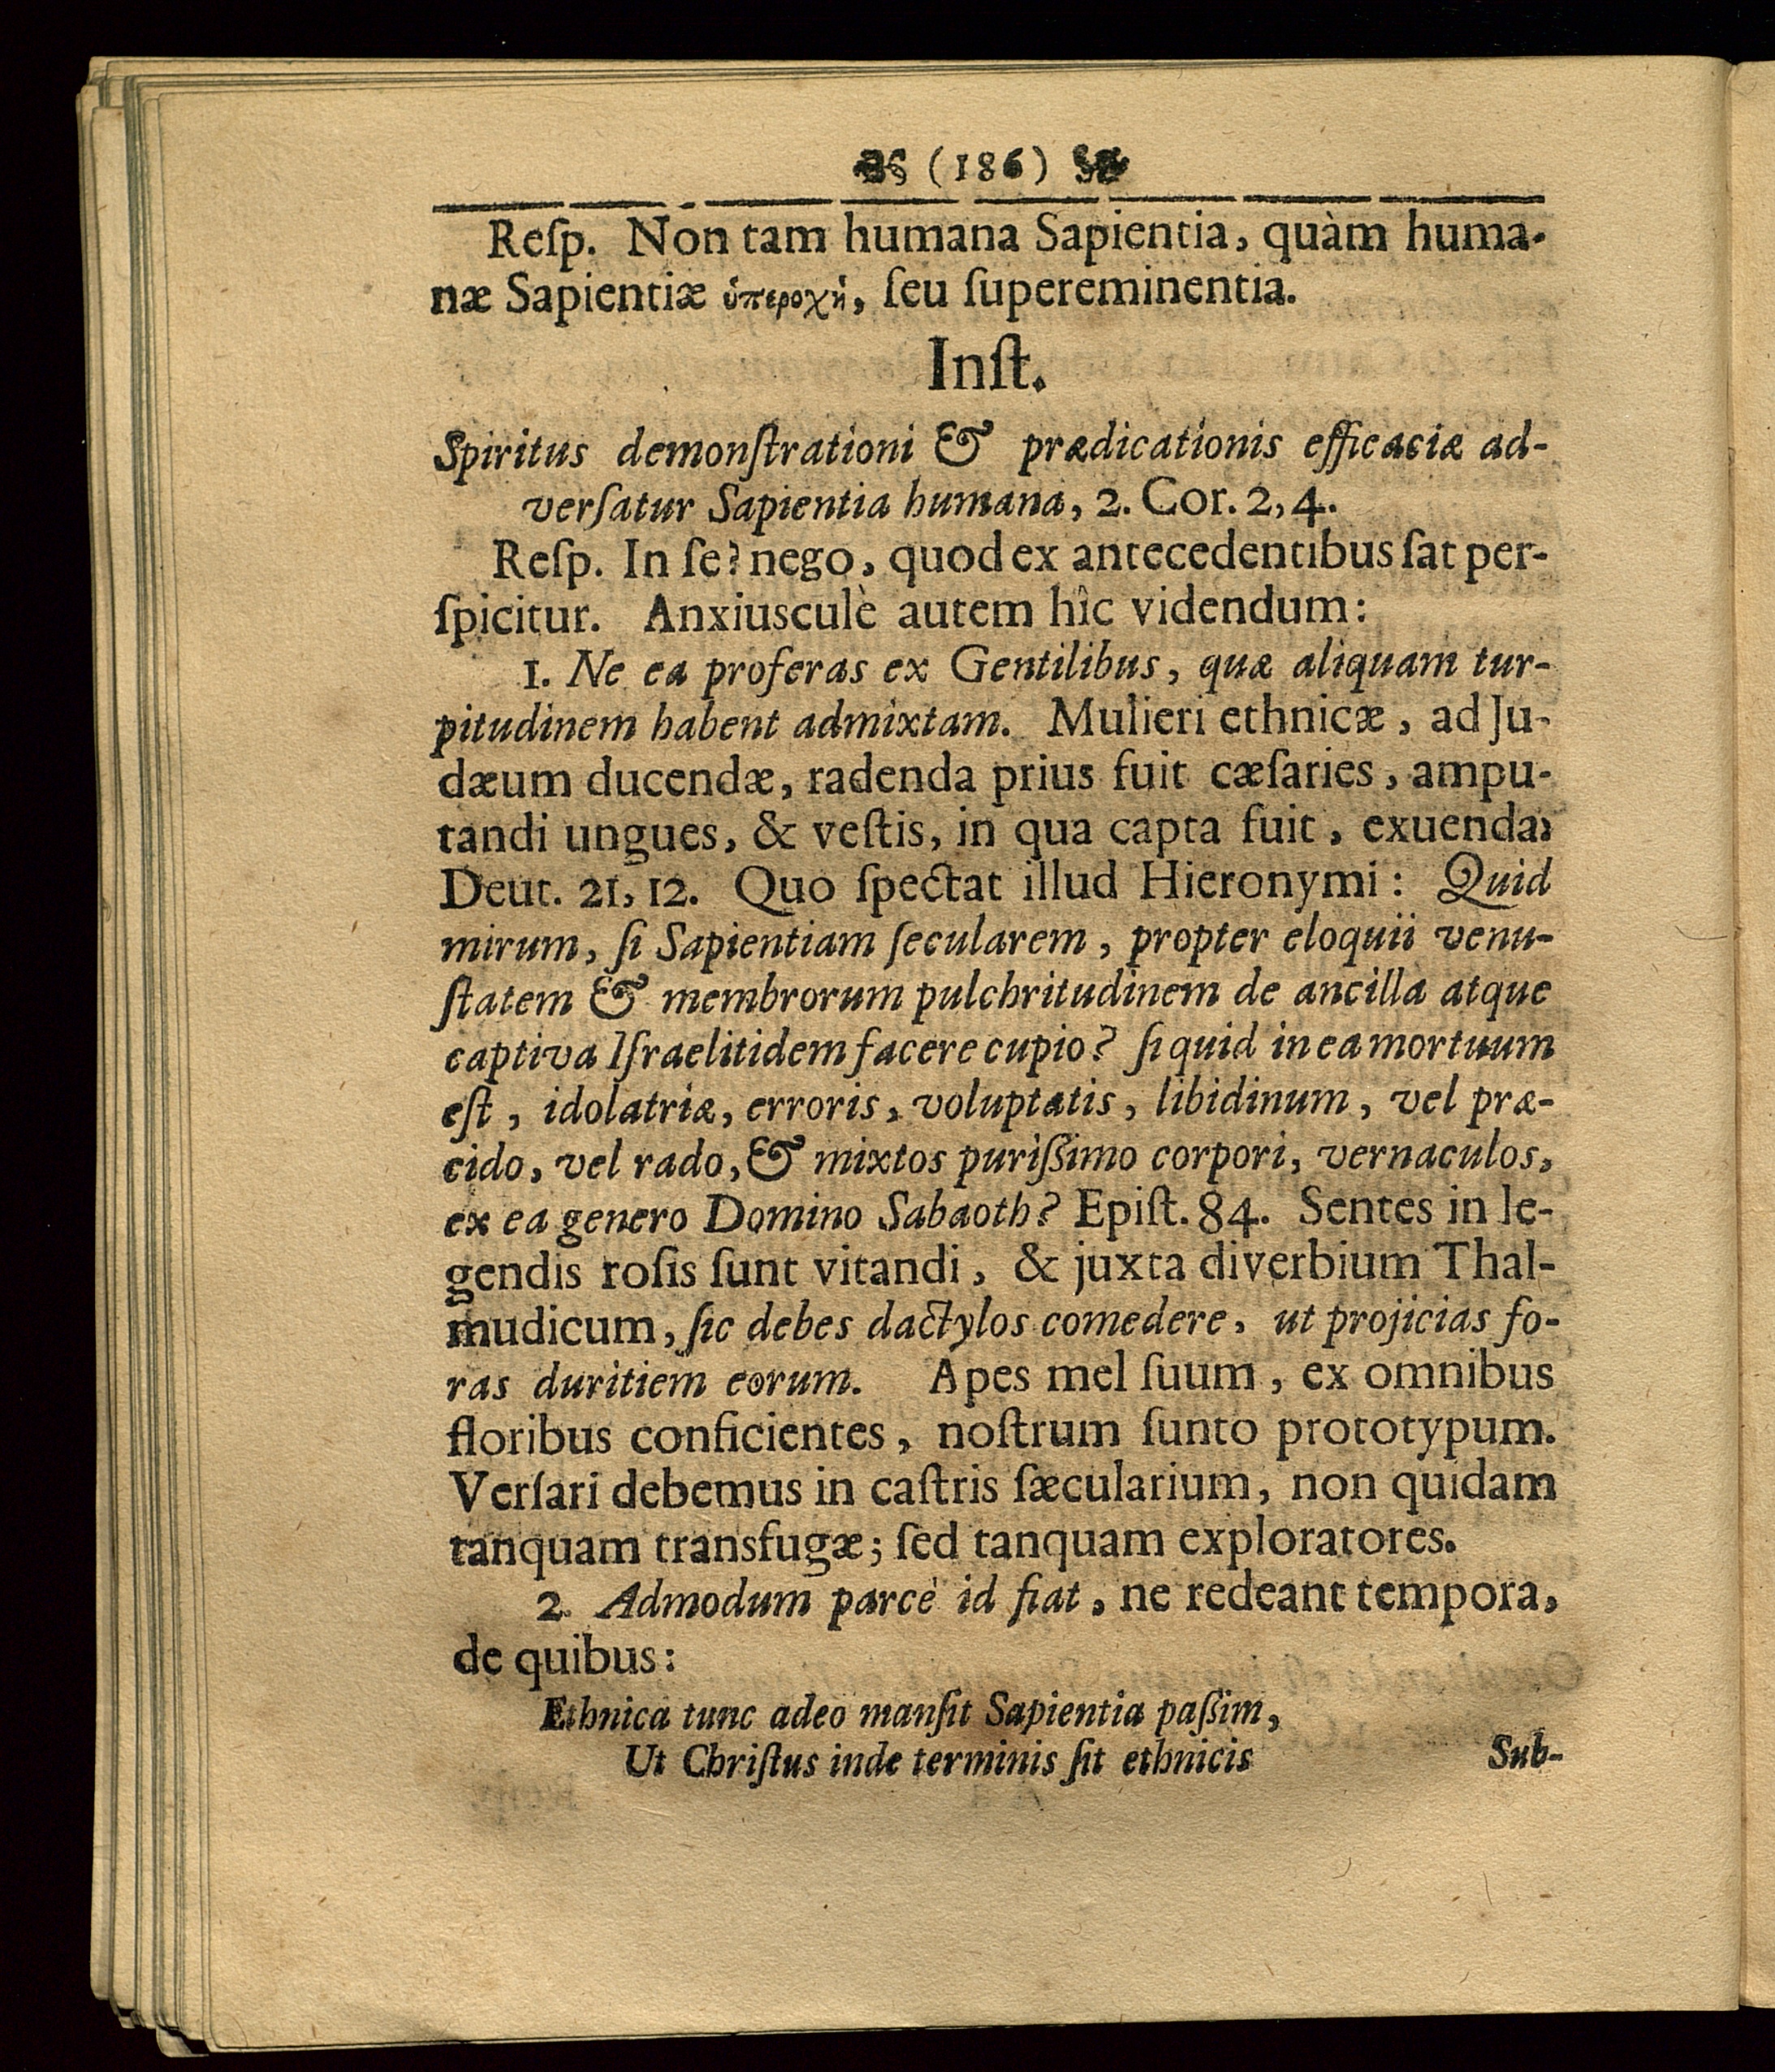 (186)
Reſp. Non tam humana Sapientia, quàm huma-
næ Sapientiæ ὑπεροχὴ, ſeu ſupereminentia.
Inſt.
Spiritus demonſtrationi & prædicationis efficaciæ ad-
verſatur Sapientia humana, 2. Cor. 2, 4.
Reſp. In ſe? nego, quod ex antecedentibus ſat per-
ſpicitur. Anxiusculè autem hîc videndum:
1. Ne ea proferas ex Gentilibus, quæ aliquam tur-
pitudinem habent admixtam. Mulieri ethnicæ, ad Ju-
dæum ducendæ, radenda prius fuit cæſaries, ampu-
tandi ungues, & veſtis, in qua capta fuit, exuenda,
Deut. 21, 12. Quo ſpectat illud Hieronymi: Quid
mirum, ſi Sapientiam ſecularem, propter eloquii venu-
ſtatem & membrorum pulchritudinem de ancilla atque
captiva Iſraelitidem facere cupio? ſi quid in ea mortuum
eſt, idolatriæ, erroris, voluptatis, libidinum, vel præ-
cido, vel rado, & mixtos puriſſimo corpori, vernaculos,
ex ea genero Domino Sabaoth? Epiſt. 84. Sentes in le-
gendis roſis ſunt vitandi, & juxta diverbium Thal-
mudicum, ſic debes dactylos comedere, ut projicias fo-
ras duritiem eorum. Apes mel ſuum, ex omnibus
floribus conficientes, noſtrum ſunto prototypum.
Verſari debemus in caſtris ſæcularium, non quidam
tanquam transfugæ; ſed tanquam exploratores.
2. Admodum parcè id fiat, ne redeant tempora,
de quibus:
Ethnica tunc adeo manſit Sapientia paſſim,
Ut Chriſtus inde terminis ſit ethnicis
Sub-